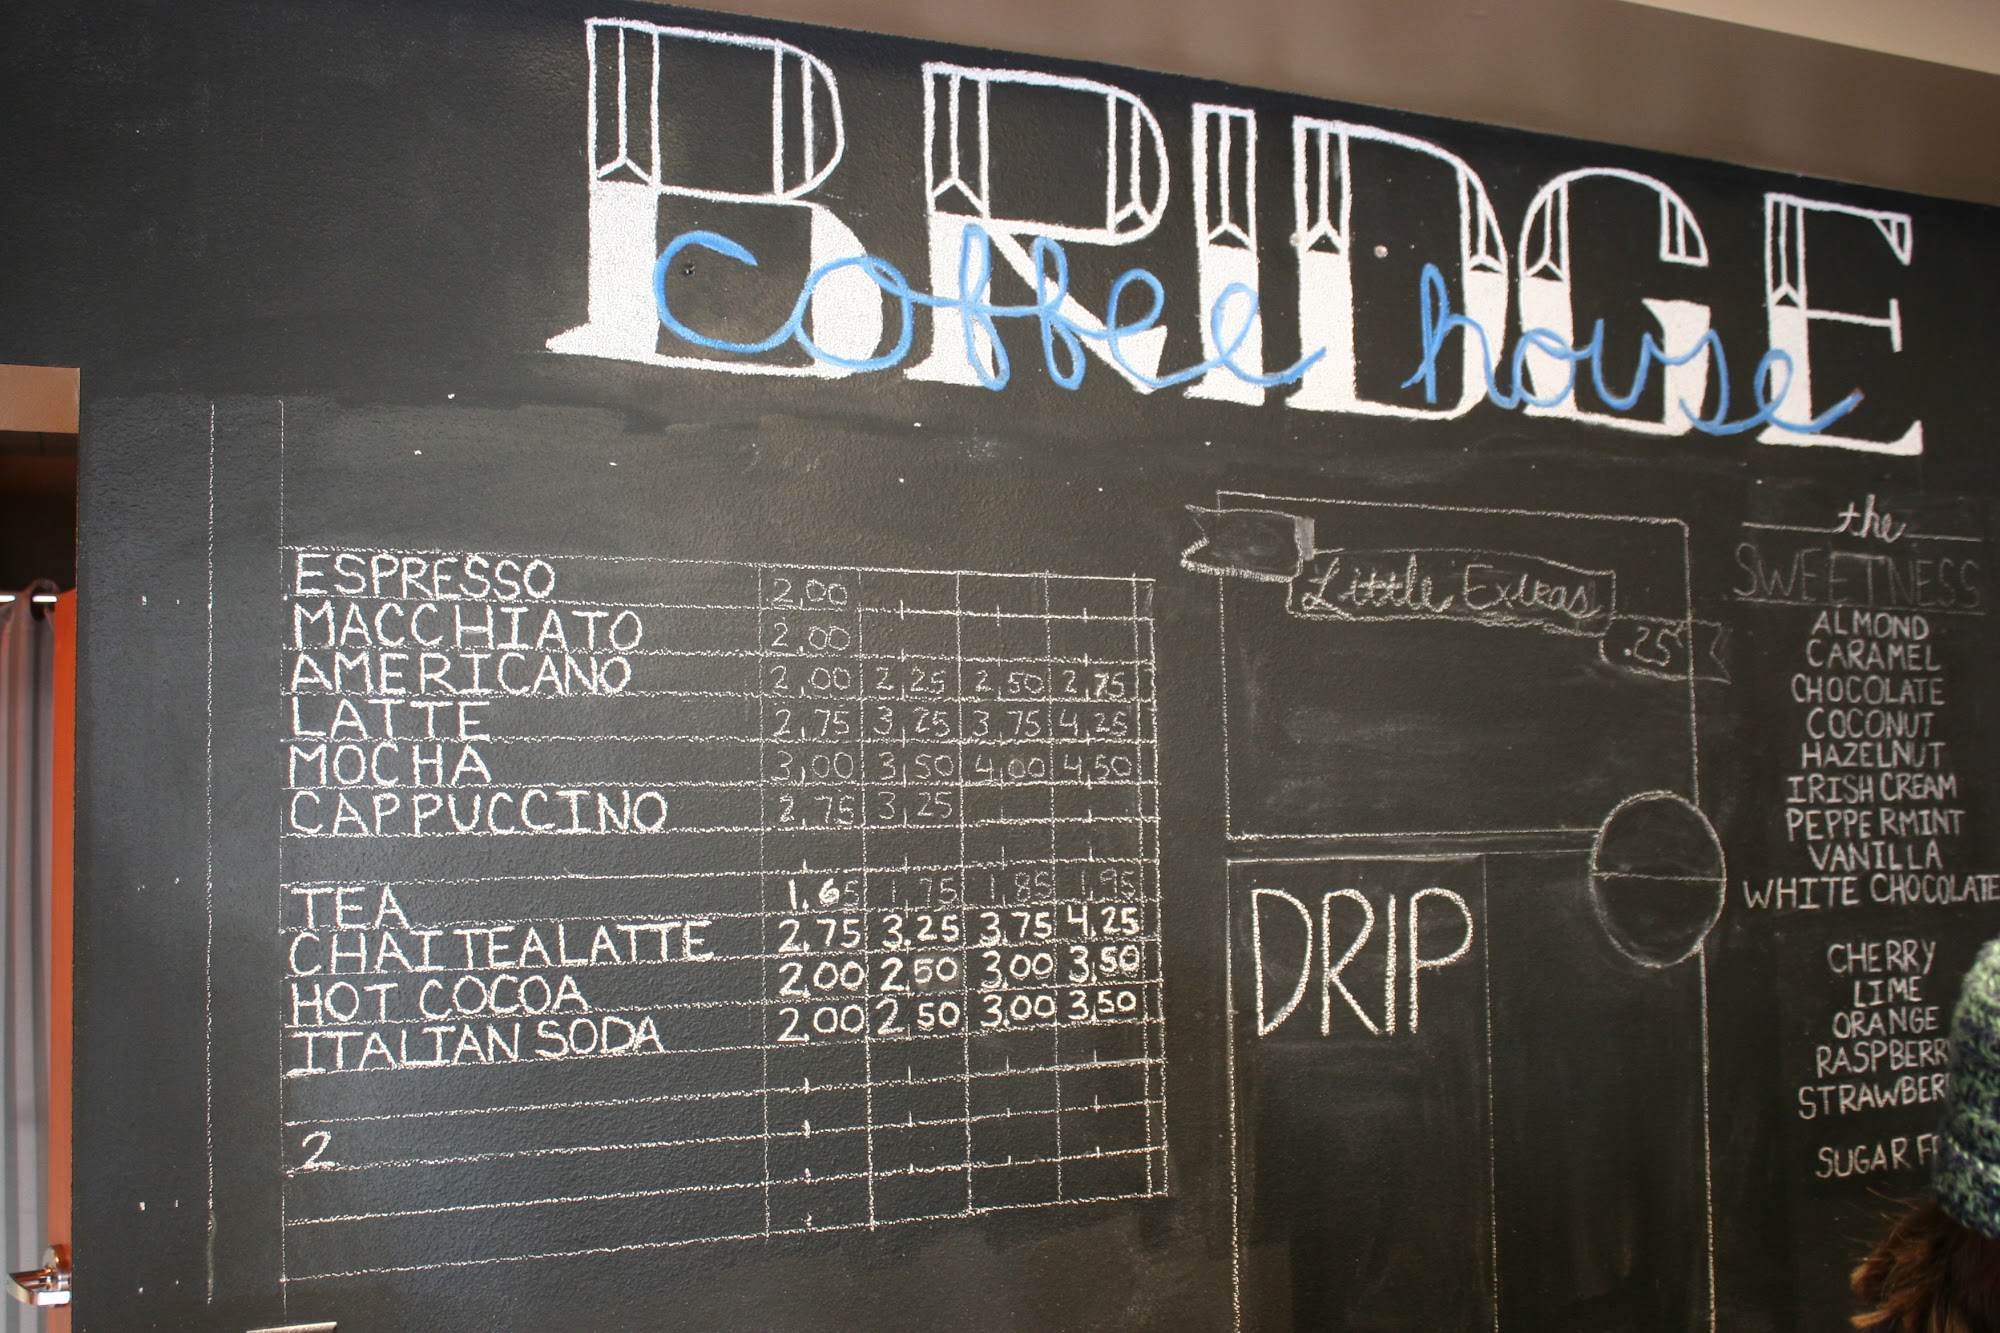 BRIDGE
coffee house
ESPRESSO 2.00
MACCHIATO 2.00
AMERICANO 2.00 2.25 2.50 2.75
LATTE 2.75 3.25 3.75 4.25
MOCHA 3.00 3.50 4.00 4.50
CAPPUCCINO 2.75 3.25
TEA 1.65 1.75 1.85 1.95
CHAI TEA LATTE 2.75 3.25 3.75 4.25
HOT COCOA 2.00 2.50 3.00 3.50
ITALIAN SODA 2.00 2.50 3.00 3.50
2
Little Extras
.25
DRIP
the
SWEETNESS
ALMOND
CARAMEL
CHOCOLATE
COCONUT
HAZELNUT
IRISH CREAM
PEPPERMINT
VANILLA
WHITE CHOCOLATE
CHERRY
LIME
ORANGE
RASPBERRY
STRAWBER
SUGAR F